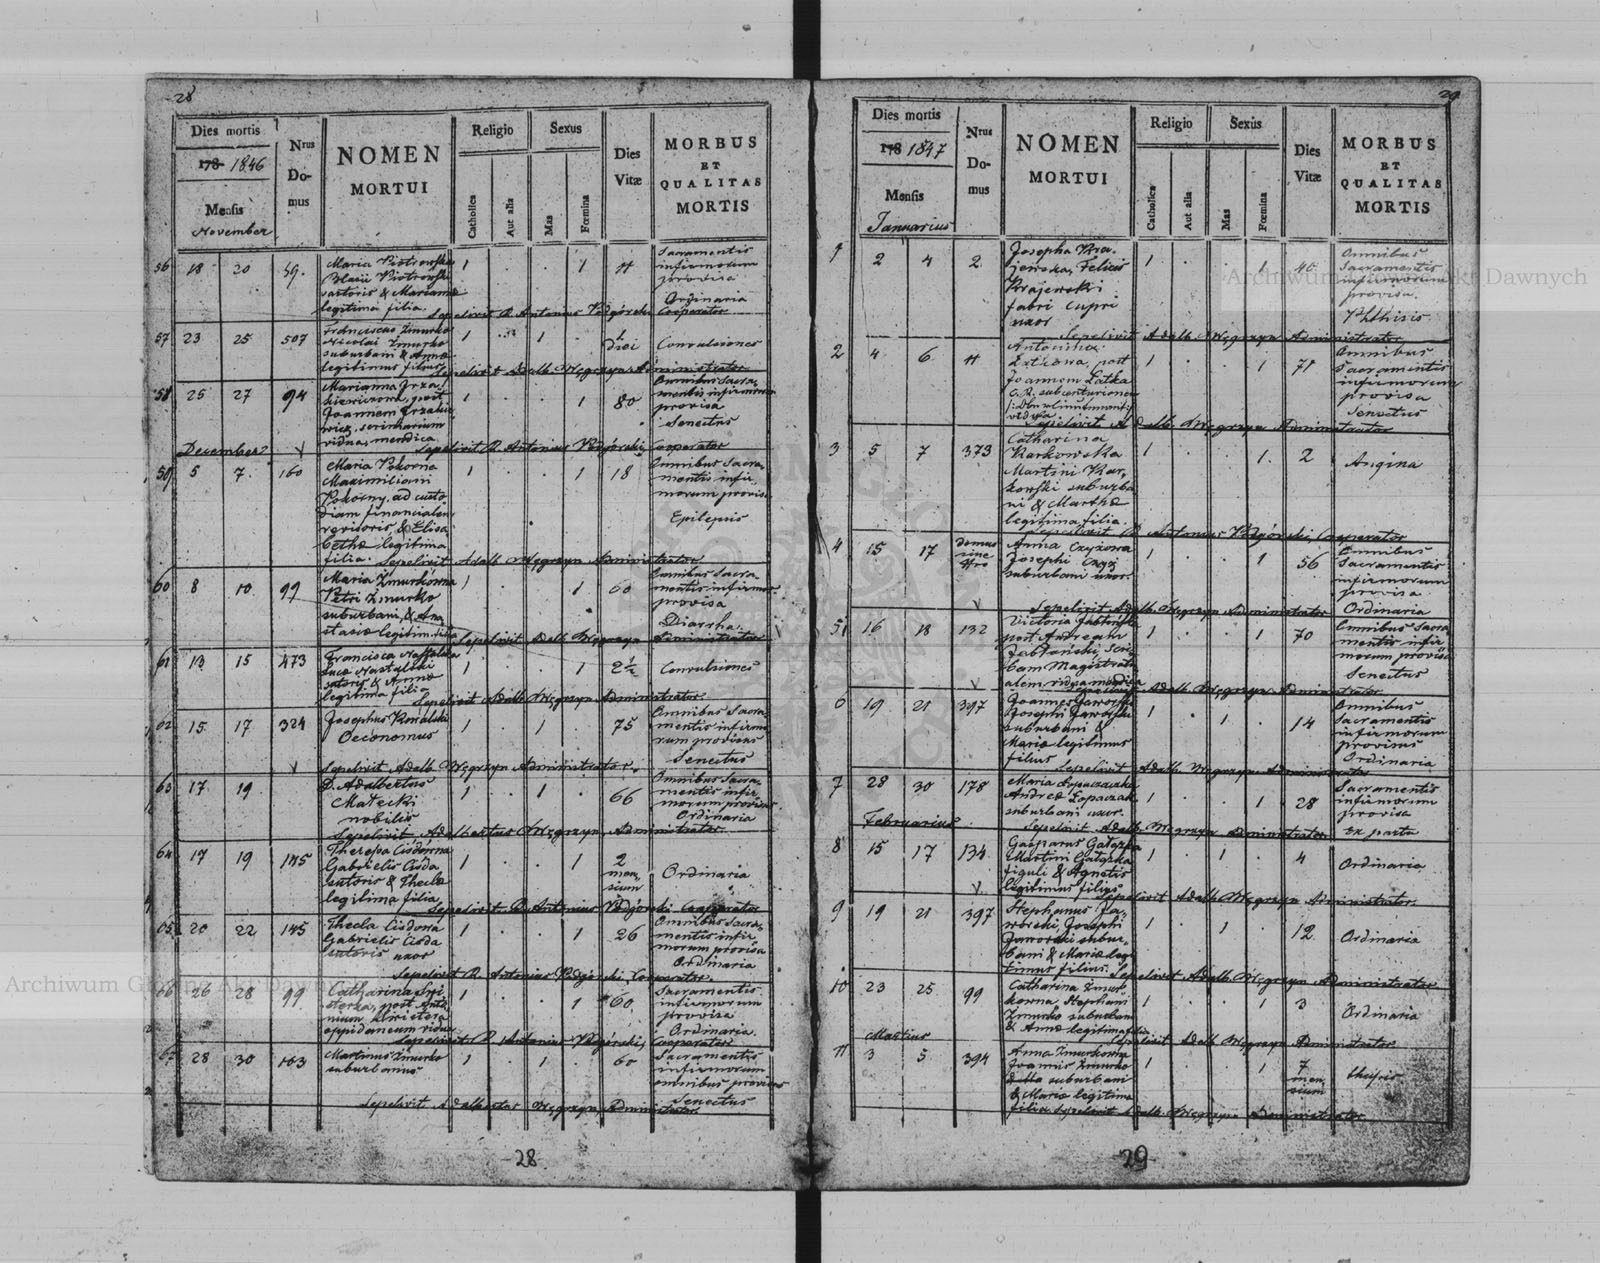 28
Dies mortis
178 1846
Mensis
November
Nrus Domus
NOMEN
MORTUI
Religio
Catholica
Aut alia
Sexus
Mas
Fœmina
Dies Vitæ
MORBUS
ET
QUALITAS
MORTIS
56 18 20 59.
Maria Piotrowska
Blasii Piotrowski
sartoris & Marianna
legitima filia.
1 . . 1 11
Sacramentis
infirmorum
provisa
Ordinaria
Sepelivit R. Antonius Podgórski Cooperator
57 23 25 507
Franciscus Żmurko
Nicolai Żmurko
suburbani & Anna
legitimus filius
1 . 1 .
Convulsiones
Sepelivit Adalb. Węgrzyn Administrator
58 25 27 94
Marianna
post
Joannem
vidua, mendica
1 . . 1 80
Omnibus Sacra-
mentis infirmorum
provisa
Senectus
December
Sepelivit R. Antonius Podgórski Cooperator
59 5 7 160
Maria Pokorna
Maximiliani
Pokorny, ad custo-
diam financialem
revisoris & Elisa-
bethæ legitima
filia
1 . . 1 18
Omnibus Sacra-
mentis infir-
morum provisa
Epilepsis
Sepelivit Adalb Węgrzyn Administrator
60 8 10. 99
Maria Żmurkówna
Petri Żmurko
suburbani, & Ana-
stasiæ legitim. filia
1 . . 1 60
Omnibus Sacra-
mentis infirmor
provisa
Diarrha.
Sepelivit Adalb Węgrzyn Administrator
61 13 15 473
Francisca
& Annæ
legitima filia
1 . . 1 2½
Convulsiones
Sepelivit Adalb Węgrzyn Administrator
62 15 17 324
Josephus Kowalski
Oeconomus
1 . 1 . 75
Omnibus Sacra-
mentis infirmo-
rum provisus
Senectus
Sepelivit Adalb. Węgrzyn Administrator.
63 17 19
D. Adalbertus
Małecki
nobilis
1 . 1 . 66
Omnibus Sacra-
mentis infir-
morum provisus
Ordinaria
Sepelivit Adalbertus Węgrzyn Administrator
64 17 19 145
Theresa Cisdówna
Gabrielis Cisda
sutoris & Theclæ
legitima filia
1 . . 1
2
men-
sium
Ordinaria
Sepelivit R. Antonius Podgórski Cooperator
65 20 22 145
Thecla Cisdowa
Gabrielis Cisda
sutoris
uxor
1 . . 1 26
Omnibus Sacra-
mentis infir-
morum provisa
Ordinaria
Sepelivit R. Antonius Podgórski, Cooperator.
66 26 28 99
Catharina
post Anto-
nium
oppidaneum vidua
1 . . 1 60
Sacramentis
infirmorum
provisa
Ordinaria.
Sepelivit R. Antonius Podgórski, Cooperator
67 28 30 163
Martinus Żmurko
suburbanus
1 . 1 . 60
Sacramentis
infirmorum
omnibus provisus
Senectus
Sepelivit Adalbertus Węgrzyn, Administrator
28
29
Dies mortis
178 1847
Mensis
Januarius
Nrus Domus
NOMEN
MORTUI
Religio
Catholica
Aut alia
Sexus
Mas
Fœmina
Dies Vitæ
MORBUS
ET
QUALITAS
MORTIS
1 2 4 2.
Josepha Kra-
jewska, Felicis
Krajewski
fabri cupri
uxor
1 . . 1 40
Omnibus
Sacramentis
infirmorum
provisa.
Phthisis.
Sepelivit Adalb Węgrzyn Administrator
2 4 6. 11
Antonina
Łatkowa, post
Joannem Łatka
vidua
1 . . 1 71
Omnibus
Sacramentis
infirmorum
provisa
Senectus
Sepelivit Adalb. Węgrzyn Administrator
3 5 7 373
Catharina
Karkowska
Martini Kar-
kowski suburba-
ni & Marthæ
legitima filia
1 . . 1. 2
Angina
Sepelivit R Antonius Podgórski, Cooperator
4 15 17
domus
sine
Nro
Anna Czyżowa
Josephi Czyż
suburbani uxor
1 . . 1 56
Omnibus
Sacramentis
infirmorum
provisa
Ordinaria
Sepelivit Adalb. Węgrzyn Administrator
5 16 18 132
Victoria Jabłońska
post Andream
Jabłoński, Scri-
bam Magistratu-
alem vidua mendica
1 . . 1 70
Omnibus Sacra-
mentis infir-
morum provisa
Senectus
Sepelivit Adalb Węgrzyn Administrator
6 19 21 397
Joannes Jaworski
Josephi Jaworski
suburbani &
Mariæ legitimus
filius
1 . 1 . 14
Omnibus
Sacramentis
infirmorum
provisus
Ordinaria
Sepelivit Adalb. Węgrzyn Administrator
7 28 30 178
Maria Łopaczaka
Andreæ Łopaczak
suburbani uxor.
1 . . 1 28
Sacramentis
infirmorum
provisa
Ex partu
Februarius
Sepelivit Adalb. Węgrzyn Administrator
8 15 17 134
Gasparus Gałązka
Martini Gałązka
figuli & Agnetis
legitimus filius
1 . 1 . 4
Ordinaria
Sepelivit Adalb Węgrzyn Administrator.
9 19 21 397
Stephanus Ja-
worski, Josephi
Jaworski subur-
bani & Mariæ legi-
timus filius.
1 . 1 . 12
Ordinaria
Sepelivit Adalb. Węgrzyn Administrator
10 23 25 99
Catharina Żmur-
kowna, Stephani
Żmurko suburbani
& Annæ legitima filia
1 . . 1 3
Ordinaria
Martius
Sepelivit Adalb Węgrzyn Administrator
11 3 5 394
Anna Żmurkowna
Joannis Żmurko
suburbani
& Mariæ legitima
filia
1 . . 1
7
men-
sium
Sepelivit Adalb. Węgrzyn Administrator
29
Archiwum Główne Akt Dawnych
Archiwum Główne Akt Dawnych